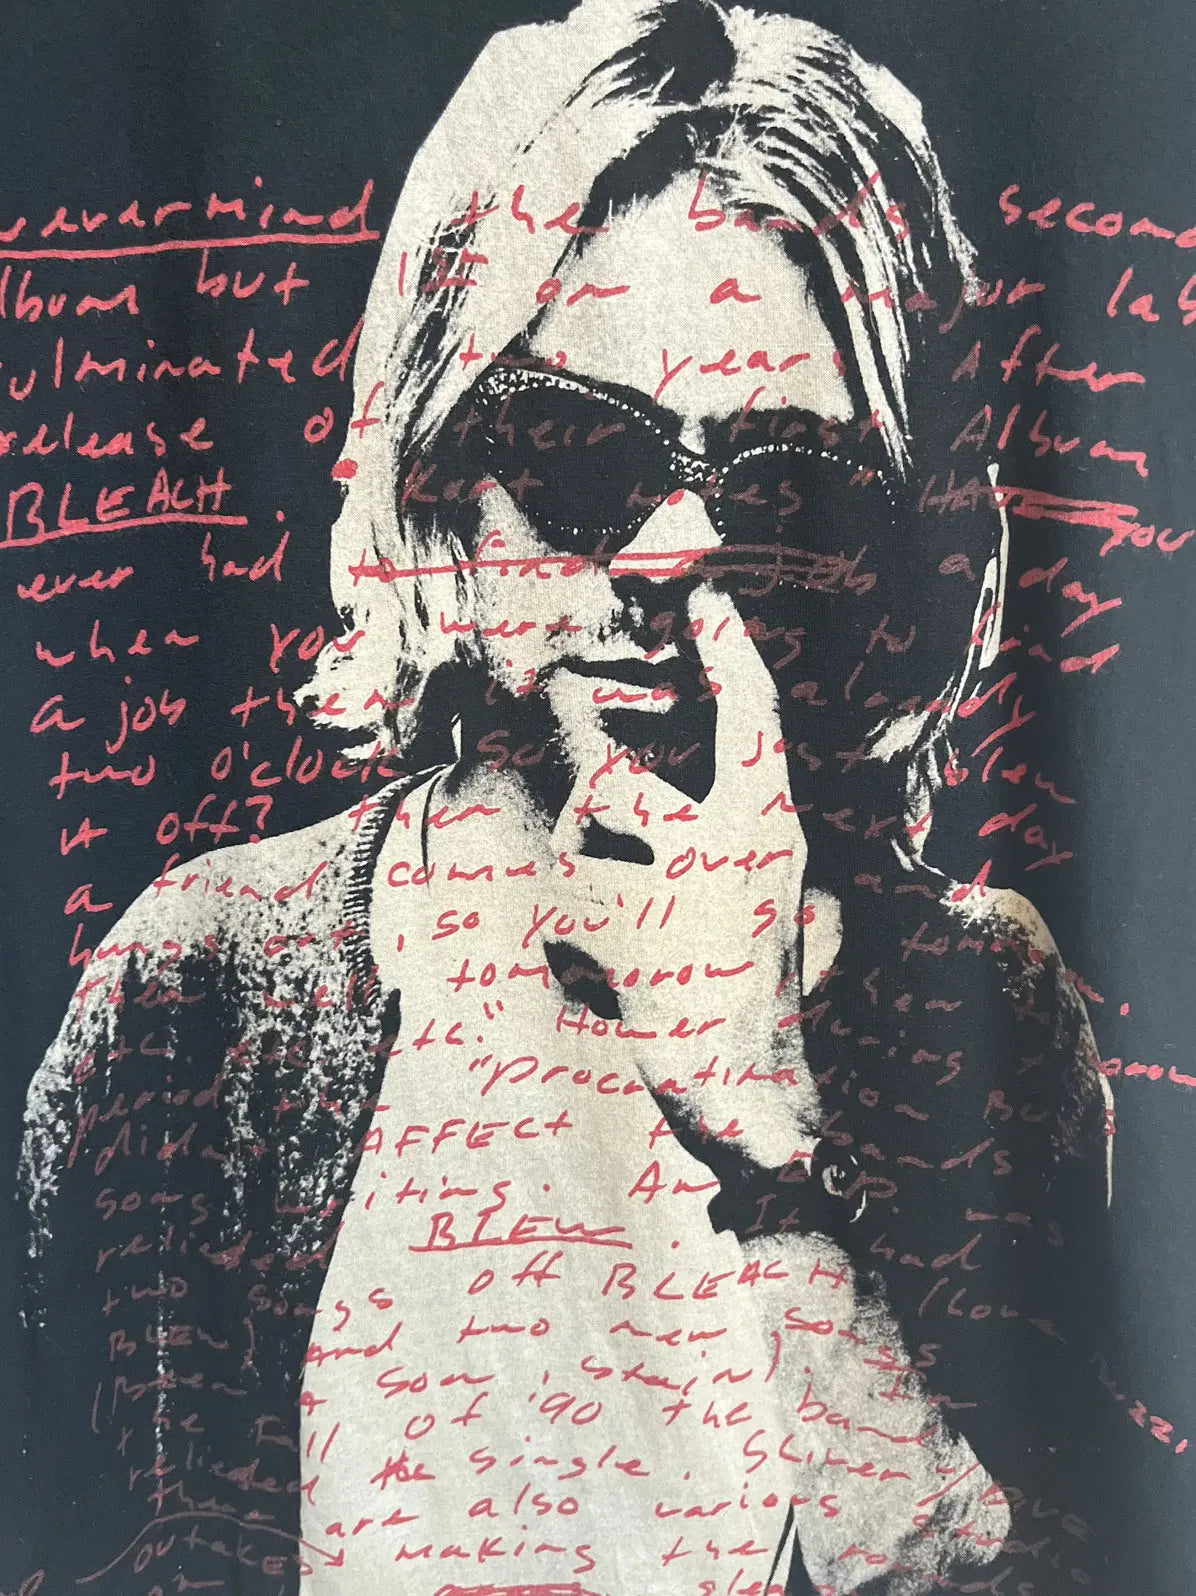 nevermind the bands second
album but 1ST on a major lab
culminated two years After
release of their first Album
BLEACH. Kurt notes "HAVE you
ever had to find a job a day
when you were going to find
a job then it was already
two o'clock so you just blew
it off? then the next day
a friend comes over and
hangs out, so you'll go tomorrow.
then well tomorrow, then
etc. etc. etc." However during
period the "Procrastination
didnt AFFECT the bands
song writing. An Ep was
relised BLEW. It had
two songs off BLEACH (love
BLEW) And two new songs
(Been A Son, Stain). In
the Fall of '90 the band
relieded the single, Sliver /DIVE
there are also various studio
outakes making the rounds